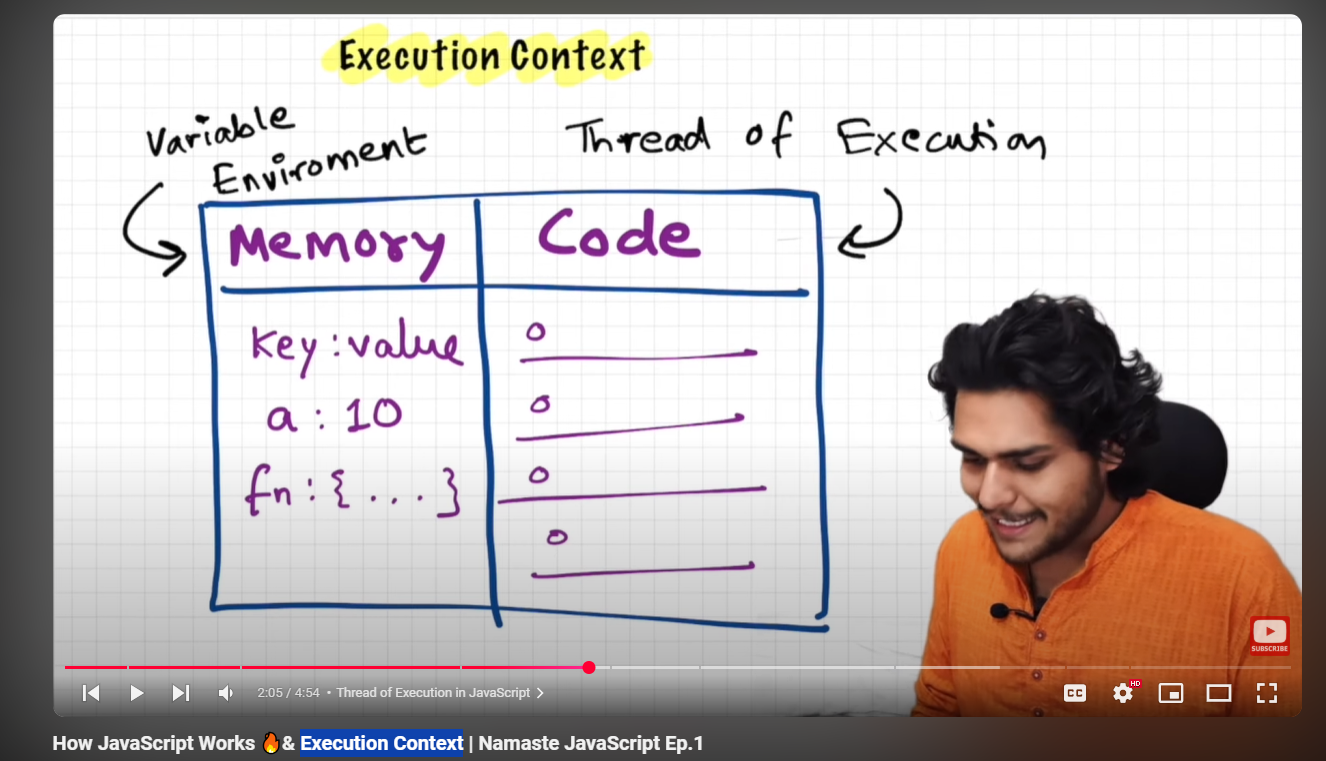 Execution Context
Variable
Enviroment
Thread of Execution
Memory
Code
key : value
a : 10
fn : { . . . }
SUBSCRIBE
2:05 / 4:54 • Thread of Execution in JavaScript
CC
HD
How JavaScript Works 🔥& Execution Context | Namaste JavaScript Ep.1